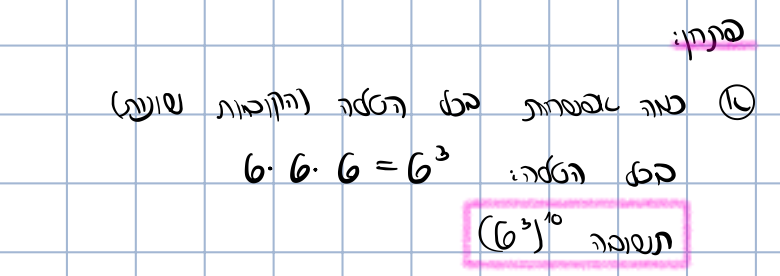 פתרון:
א כמה אפשרויות בכל הטלה (הקוביות שונות)
בכל הטלה: 6 · 6 · 6 = 6³
תשובה (6³)¹⁰